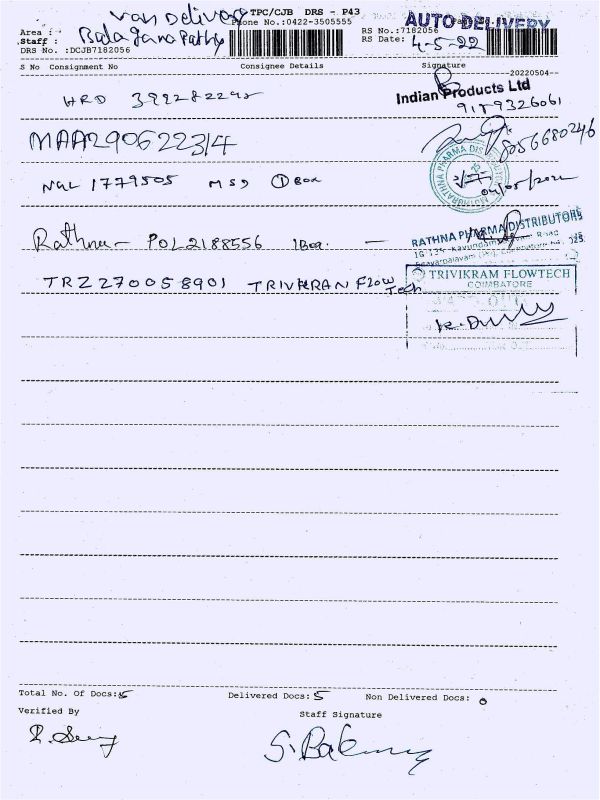 TPC/CJB DRS - P43
Van Delivery
AUTO DELIVERY
Area :
Phone No.:0422-3505555
RS No.:7182056
Staff : Bala Ganapathy
RS Date: 4-5-22
DRS No. :DCJB7182056
S No Consignment No Consignee Details Signature
--20220504--
HRD 399282292
Indian Products Ltd
9189326061
MAA290622314
8056680246
NGL 1779505 MSD 1 Box
04/05/2022
Rathna - POL2188556 1Box. -
RATHNA PHARMA DISTRIBUTORS
TRZ270058901 TRIVIKRAN Flow Tech
TRIVIKRAM FLOWTECH
COIMBATORE
Total No. Of Docs:5 Delivered Docs:5 Non Delivered Docs: 0
Verified By
Staff Signature